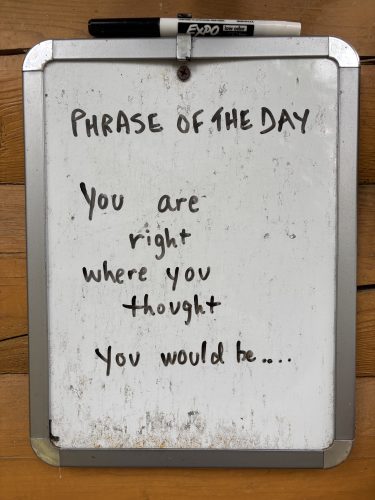 EXPO low odor
PHRASE OF THE DAY
You are
right
where you
thought
You would be....